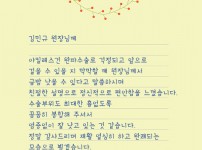 김민규 원장님께
아킬레스건 완파수술로 걱정되고 앞으로
걸을 수 있을 지 막막할 때 원장님께서
금방 낫을 수 있다고 말씀하시며
친절한 설명으로 정신적으로 편안함을 느꼈습니다.
수술부위도 최대한 흉없도록
꼼꼼히 봉합해 주셔서
염증없이 잘 낫고 있는 것 같습니다.
정말 감사드리며 재활 열심히 하고 완쾌되는
모습으로 뵙겠습니다.